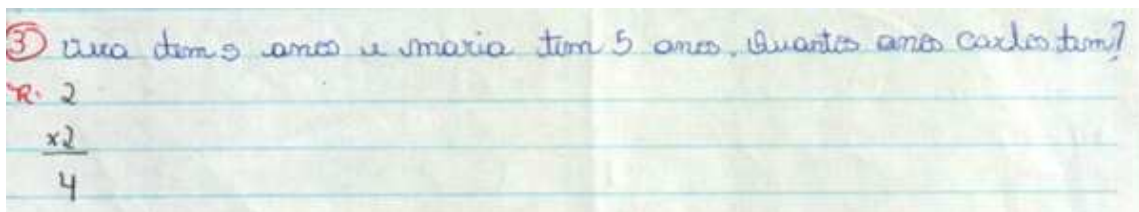 3 tem 5 anos e maria tem 5 anos. Quantos anos carlos tem?
R. 2
x2
4